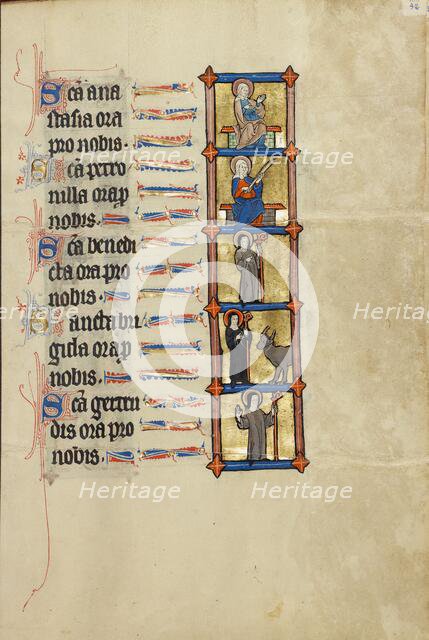 Sc̄a ana
stasia ora
pro nobis.
Sc̄a petro
nilla orap̄
nobis.
Sc̄a benedi
cta ora pro
nobis.
Sancta bri
gida orap̄
nobis.
Sc̄a gertru
dis ora pro
nobis.
Heritage Heritage
Heritage Heritage Heritage
Heritage Heritage